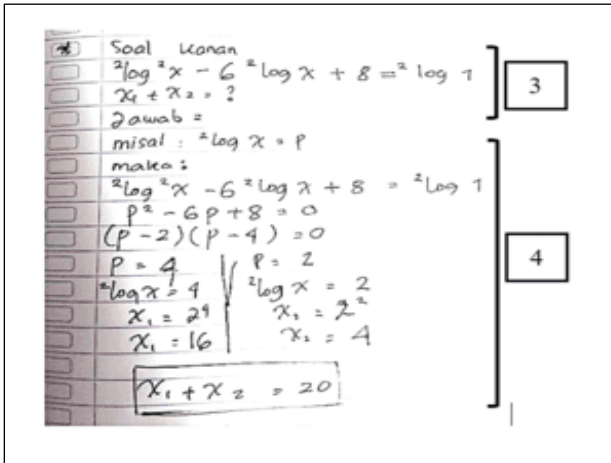 * Soal kanan
²log²x - 6 ²log x + 8 = ²log 1
x₁ + x₂ = ?
Jawab =
misal : ²log x = P
maka :
²log²x - 6 ²log x + 8 = ²log 1
P² - 6P + 8 = 0
(P - 2)(P - 4) = 0
P = 4 V P = 2
²log x = 4 ²log x = 2
x₁ = 2⁴ x₂ = 2²
x₁ = 16 x₂ = 4
x₁ + x₂ = 20
3
4